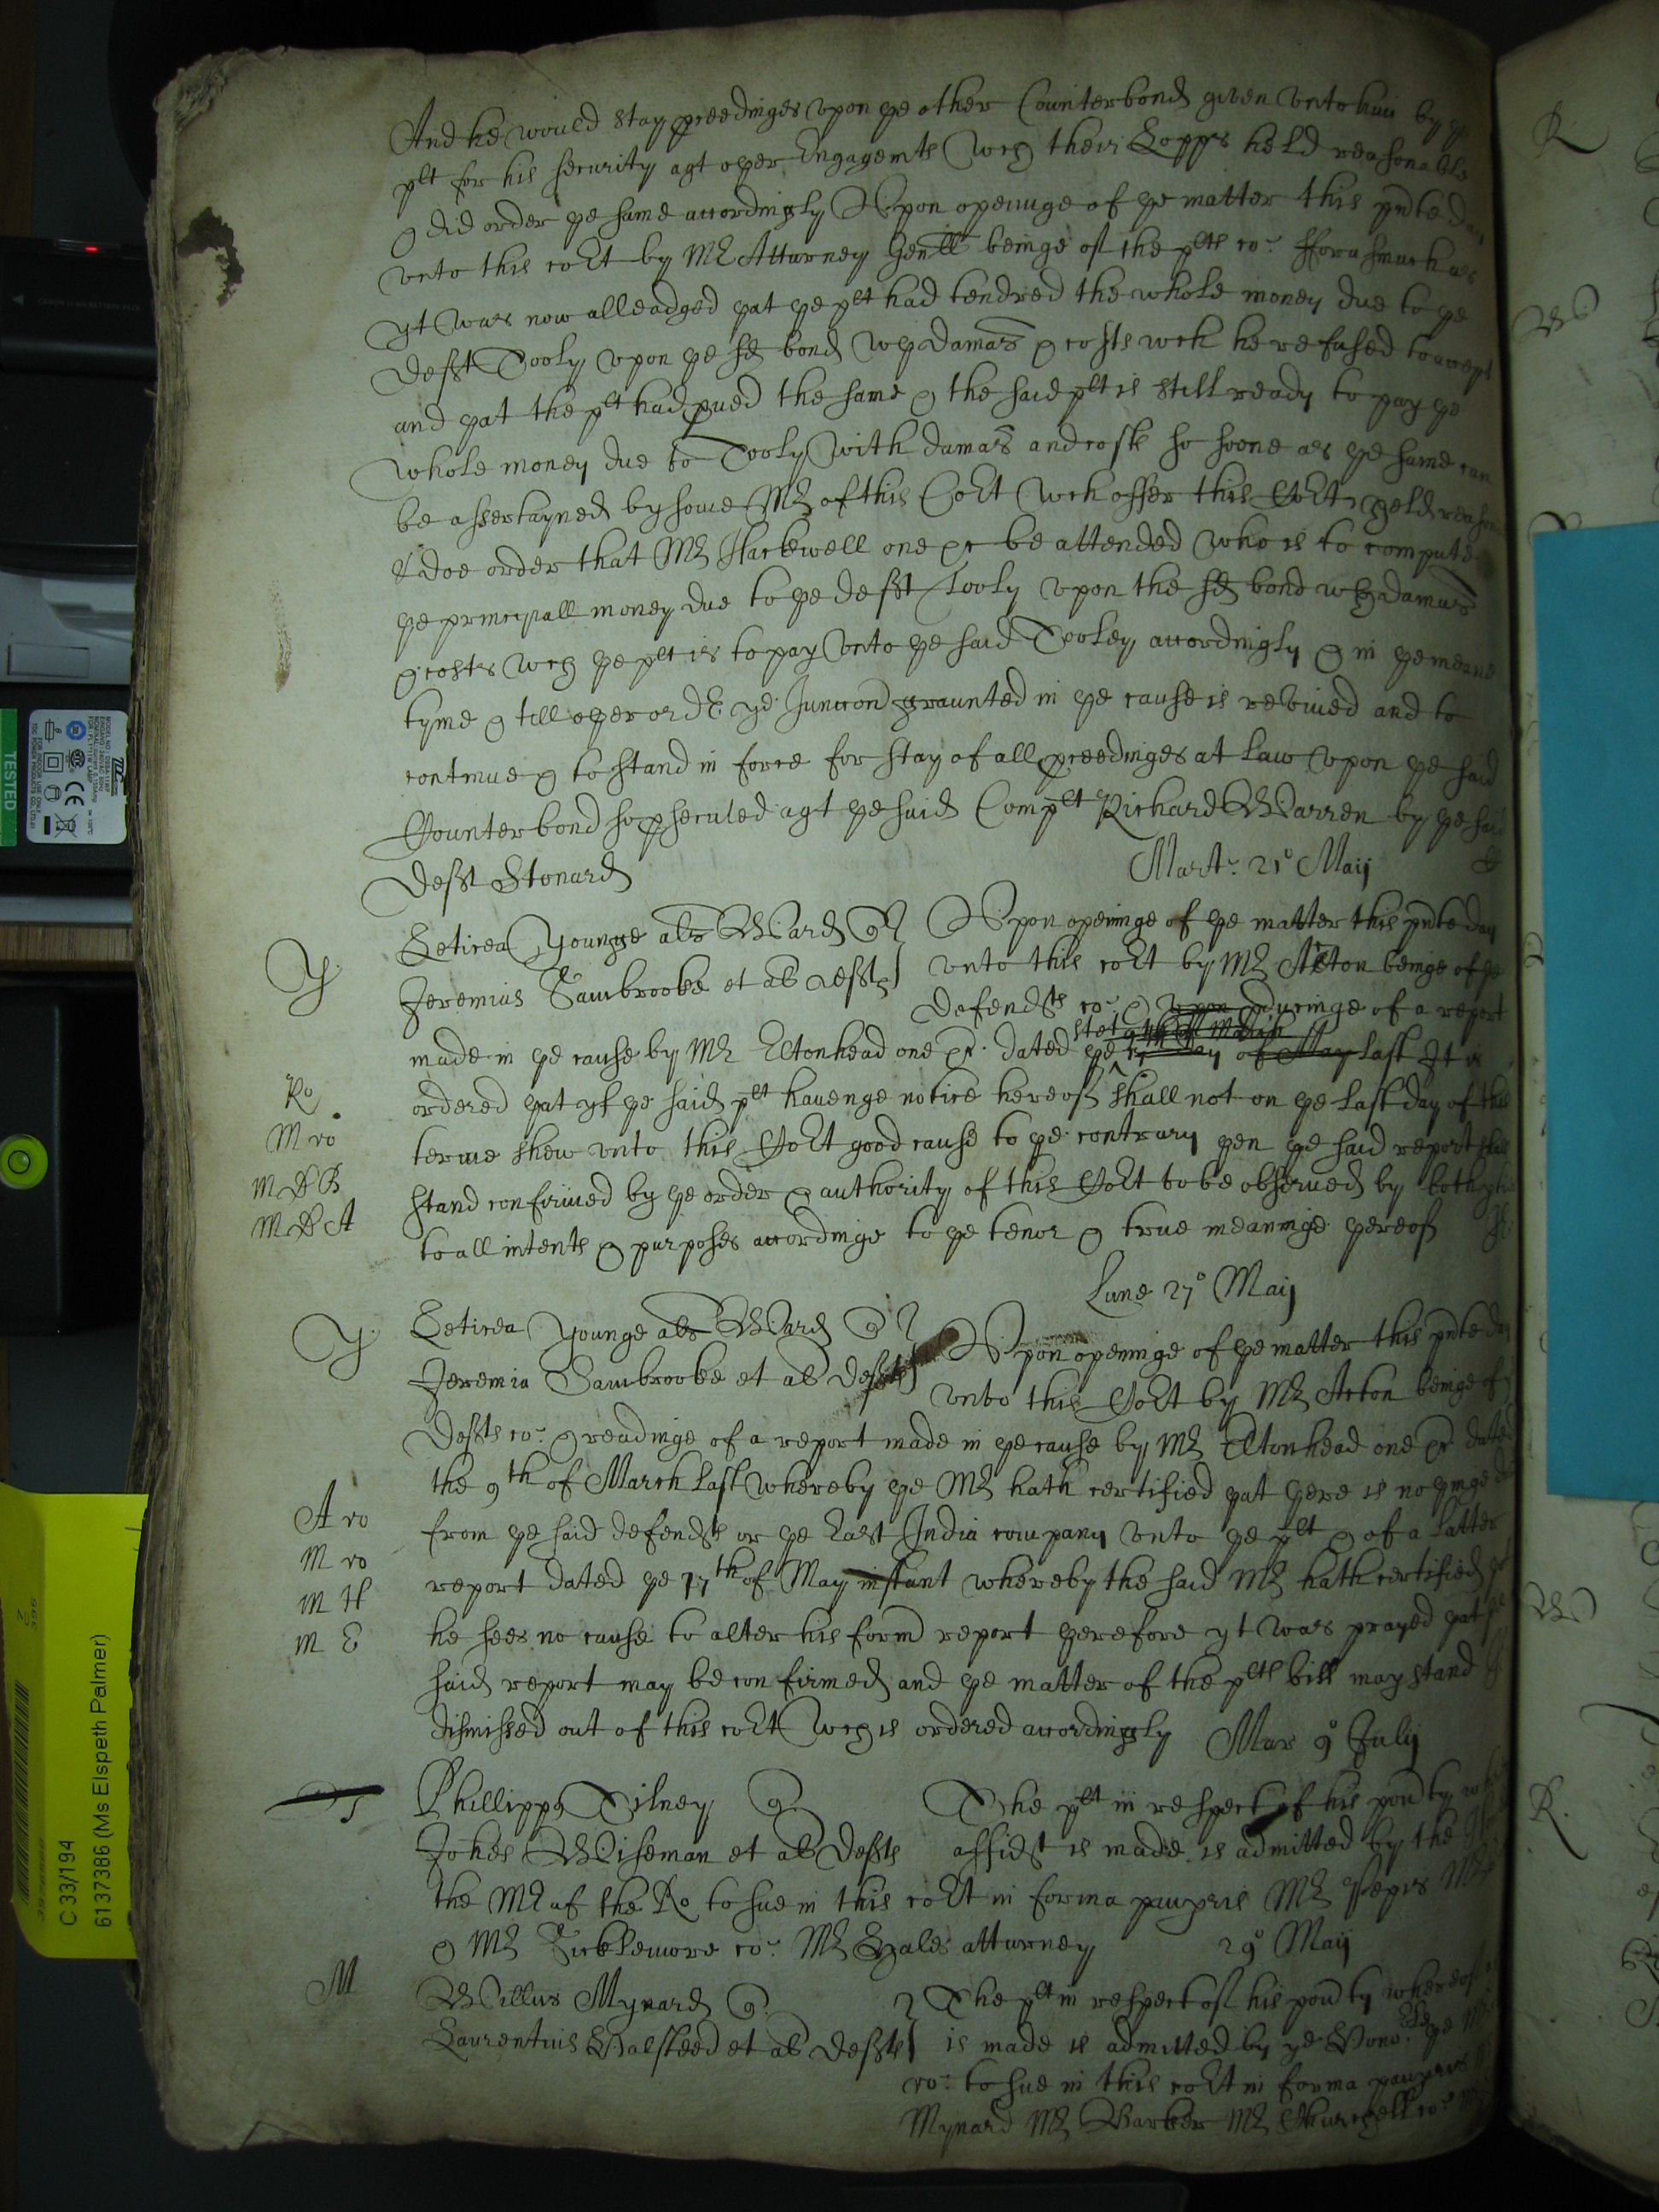 And he would stay pceedinges vpon ye other Counterbond given vnto him by ye
plt for his security agt oyer Engagemts wch their Lopps held reasonable
& did order ye same accordingly Vpon openinge of ye matter this pnte day
vnto this coʳt by Mʳ Atturney Genʳll beinge of the plts co: fforasmuch as
yt was now alleadged yat ye plt had tendred the whole money due to ye
Defft Tooly vpon ye sd bond wth damas & costs wch he refused to accept
and yat the plt had pued the same & the said plt is still ready to pay ye
whole money due to Tooly with damas and costs so soone as ye same can
be assertayned by some Mʳ of this Coʳt wch offer this Coʳt held reason
& doe order that Mʳ Hackwell one &c be attended who is to compute
ye principall money due to ye defft Tooly vpon the sd bond wth damas
& costs wch ye plt is to pay vnto ye said Tooley accordingly & in ye meane
tyme & till oyer order ye Iunccon graunted in ye cause is revived and to
continue & to stand in force for stay of all pceedinges at Law vpon ye said
Counterbond so pseculed agt ye said Complt Richard Warren by ye said
Defft Stonard
Mart: 21º Maij
Y
Leticea Younge als Ward Q
Jeremias Sambrooke et al deffts
Vpon openinge of ye matter this pnte day
vnto this coʳt by Mʳ Acton beinge of ye
Defendts co: & vpon pducinge of a report
stet 9th of March
made in ye cause by Mʳ Eltonhead one &c. dated ye 17 day of May last It is
ordered yat yf ye said plt havenge notice hereof shall not on ye last day of this
terme shew vnto this Coʳt good cause to ye contrary yen ye said report shall
stand confirmed by ye order & authority of this Coʳt to be observed by both ptie
to all intents & purposes accordinge to ye tenor & true meaninge yereof
Ro
M ro
M D B
M D A
Lune 27º Maij
Y
Leticea Younge als Ward Q
Jeremia Sambrooke et al Deffts
Vpon openinge of ye matter this pnte day
vnto this Coʳt by Mʳ Acton beinge of ye
Deffts co: & readinge of a report made in ye cause by Mʳ Eltonhead one &c dated
the 9th of March last whereby ye Mʳ hath certified yat yere is nothinge due
from ye said defendts or ye East India company vnto ye plt & of a latter
report dated ye 17th of May instant whereby the said Mʳ hath certified yat
he sees no cause to alter his formʳ report yerefore yt was prayed yat ye
said report may be confirmed and ye matter of the plts bill may stand
dismissed out of this coʳt wch is ordered accordingly
A ro
M ro
M H
M E
Mar 9º July
T
Phillippus Tilney Q
Johes Wiseman et al Deffts
The plt in respect of his poʳty whereof
affidt is made is admitted by the
the Mʳ of the Ro to sue in this coʳt in forma paupris Mʳ Pepis Mʳ
& Mʳ Ticklemore co: Mʳ Hales atturney
29º Maij
M
Willus Mynard Q
Laurentius Halsteed et al Deffts
The plt in respect of his poʳty whereof
is made is admitted by ye Hono: ye
ro: to sue in this coʳt in forma paupris
Mynard Mʳ Barker Mʳ Churchell co:
C 33/194
6137386 (Ms Elspeth Palmer)
TESTED
CANON LI-ION BATTERY PACK